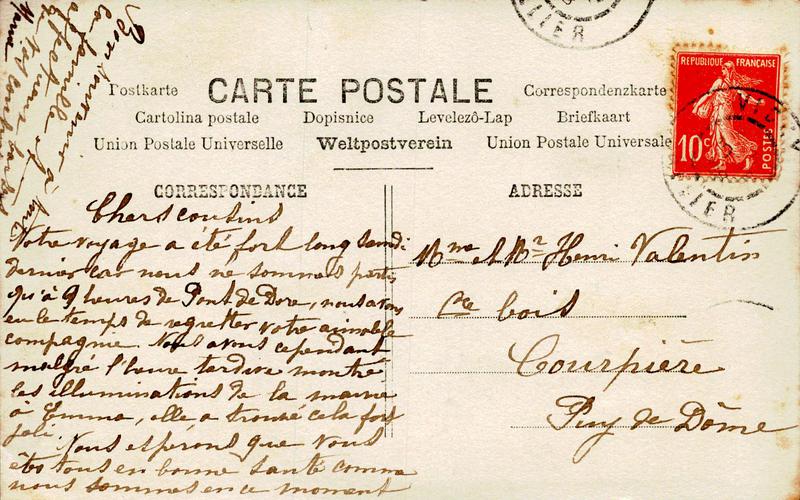 Postkarte CARTE POSTALE Correspondenzkarte
Cartolina postale Dopisnice Levelezô-Lap Briefkaart
Union Postale Universelle Weltpostverein Union Postale Universale
REPUBLIQUE FRANÇAISE
10c
POSTES
CORRESPONDANCE
Chers cousins
Notre voyage a été fort long samdi
dernier car nous ne sommes partis
qu'à 9 heures de Pont de Dore, nous avons
eu le temps de regretter votre aimable
compagnie. Nous avons cependant
malgré l'heure tardive montré
les illuminations de la mairie
à Emma, elle a trouvé cela fort
joli. Nous espérons que vous
êtes tous en bonne santé comme
nous sommes en ce moment
Bon à toute
la famille et
affections
ADRESSE
Mme et Mr Henri Valentin
bois
Courpière
Puy de Dôme
LLIER
VICHY
LLIER